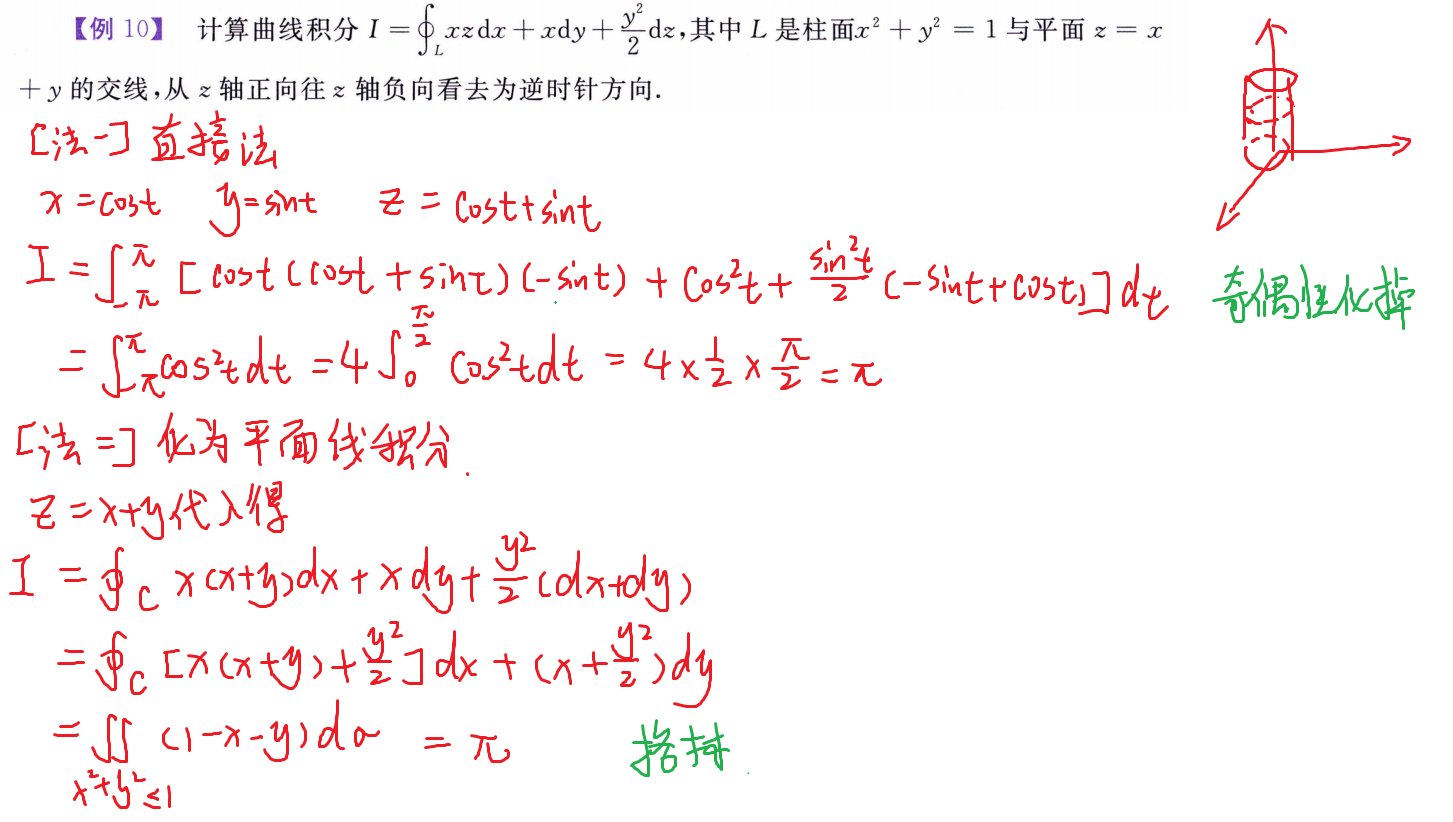 【例 10】 计算曲线积分 I = ∮_L xzdx + xdy + \frac{y²}{2}dz,其中 L 是柱面x² + y² = 1 与平面 z = x
+ y 的交线,从 z 轴正向往 z 轴负向看去为逆时针方向.
[法一] 直接法
x = cost y = sint z = cost + sint
I = ∫_{-π}^{π} [cost(cost + sint)(-sint) + cos²t + \frac{sin²t}{2}(-sint + cost)]dt 奇偶性化掉
= ∫_{-π}^{π} cos²tdt = 4∫_0^{\frac{π}{2}} cos²tdt = 4 × \frac{1}{2} × \frac{π}{2} = π
[法二] 化为平面线积分.
z = x+y代入得
I = ∮_C x(x+y)dx + xdy + \frac{y²}{2}(dx+dy)
= ∮_C [x(x+y) + \frac{y²}{2}]dx + (x + \frac{y²}{2})dy
= ∬_{x²+y²≤1} (1-x-y)dσ = π 格林